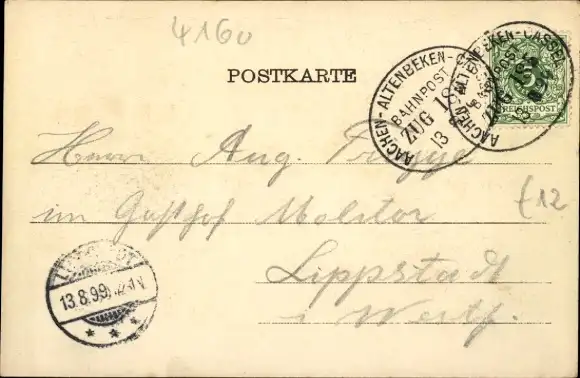 4160
POSTKARTE
AACHEN-ALTENBEKEN-C
BAHNPOST
ZUG 18
13
AACHEN-ALTENBEKEN-CASSEL
BAHNPOST
ZUG 18
13
REICHSPOST
Herrn Aug.
im Gasthof Molitor
£12
Lippstadt
i Westf.
13.8.99